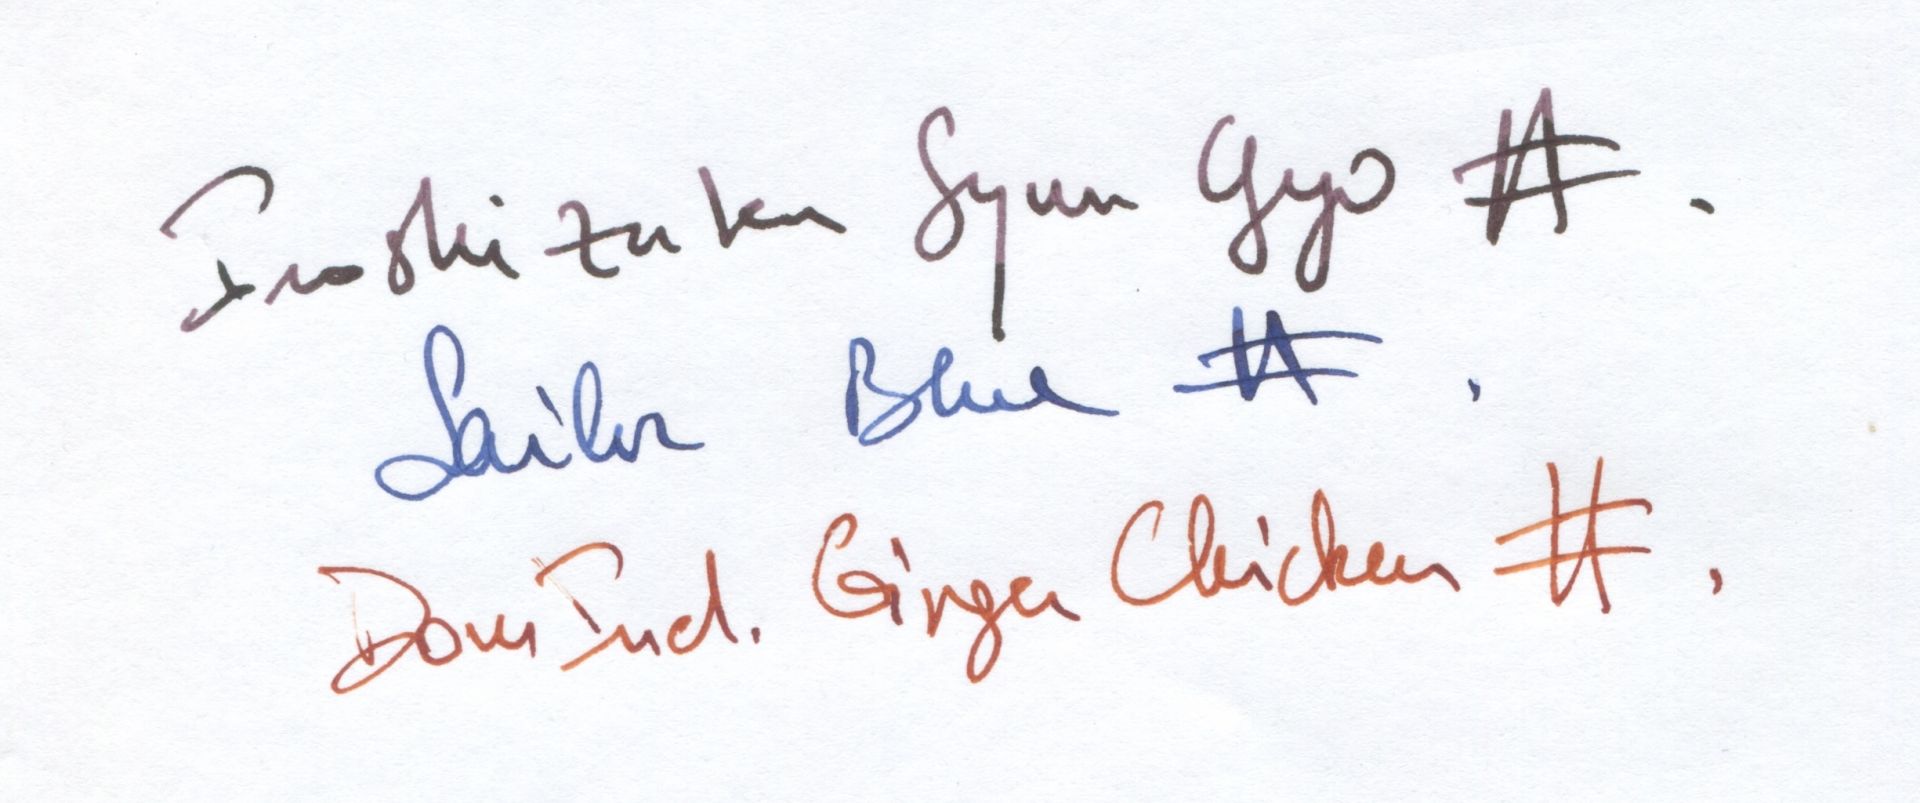 Iroshizuku Syun Gyo #.
Sailor Blue #.
Dom Ind. Ginger Chicken #.